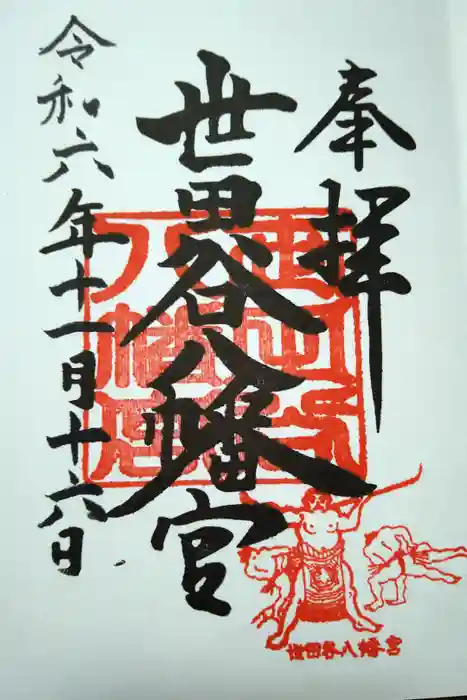 奉拝
世田谷八幡宮
令和六年十一月十六日
世田谷八幡宮
世田谷八幡宮